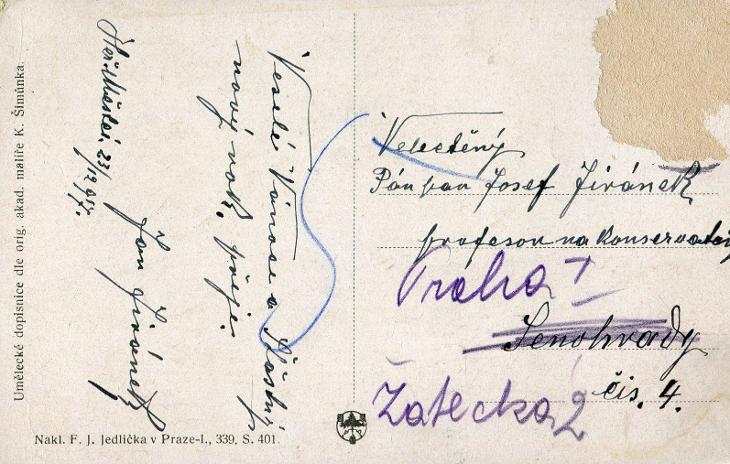 Umělecké dopisnice dle orig. akad. malíře K. Šimůnka.
Heř. Městec 23/12 917.
Veselé Vánoce a šťastný
nový rok, přeje:
Jan Jiránek
Velectěný
Pán pan Josef Jiránek
profesor na konservatoř
Praha I
Senohrady
čis. 4.
Žatecká 2
Nakl. F. J. Jedlička v Praze-I., 339, S. 401.